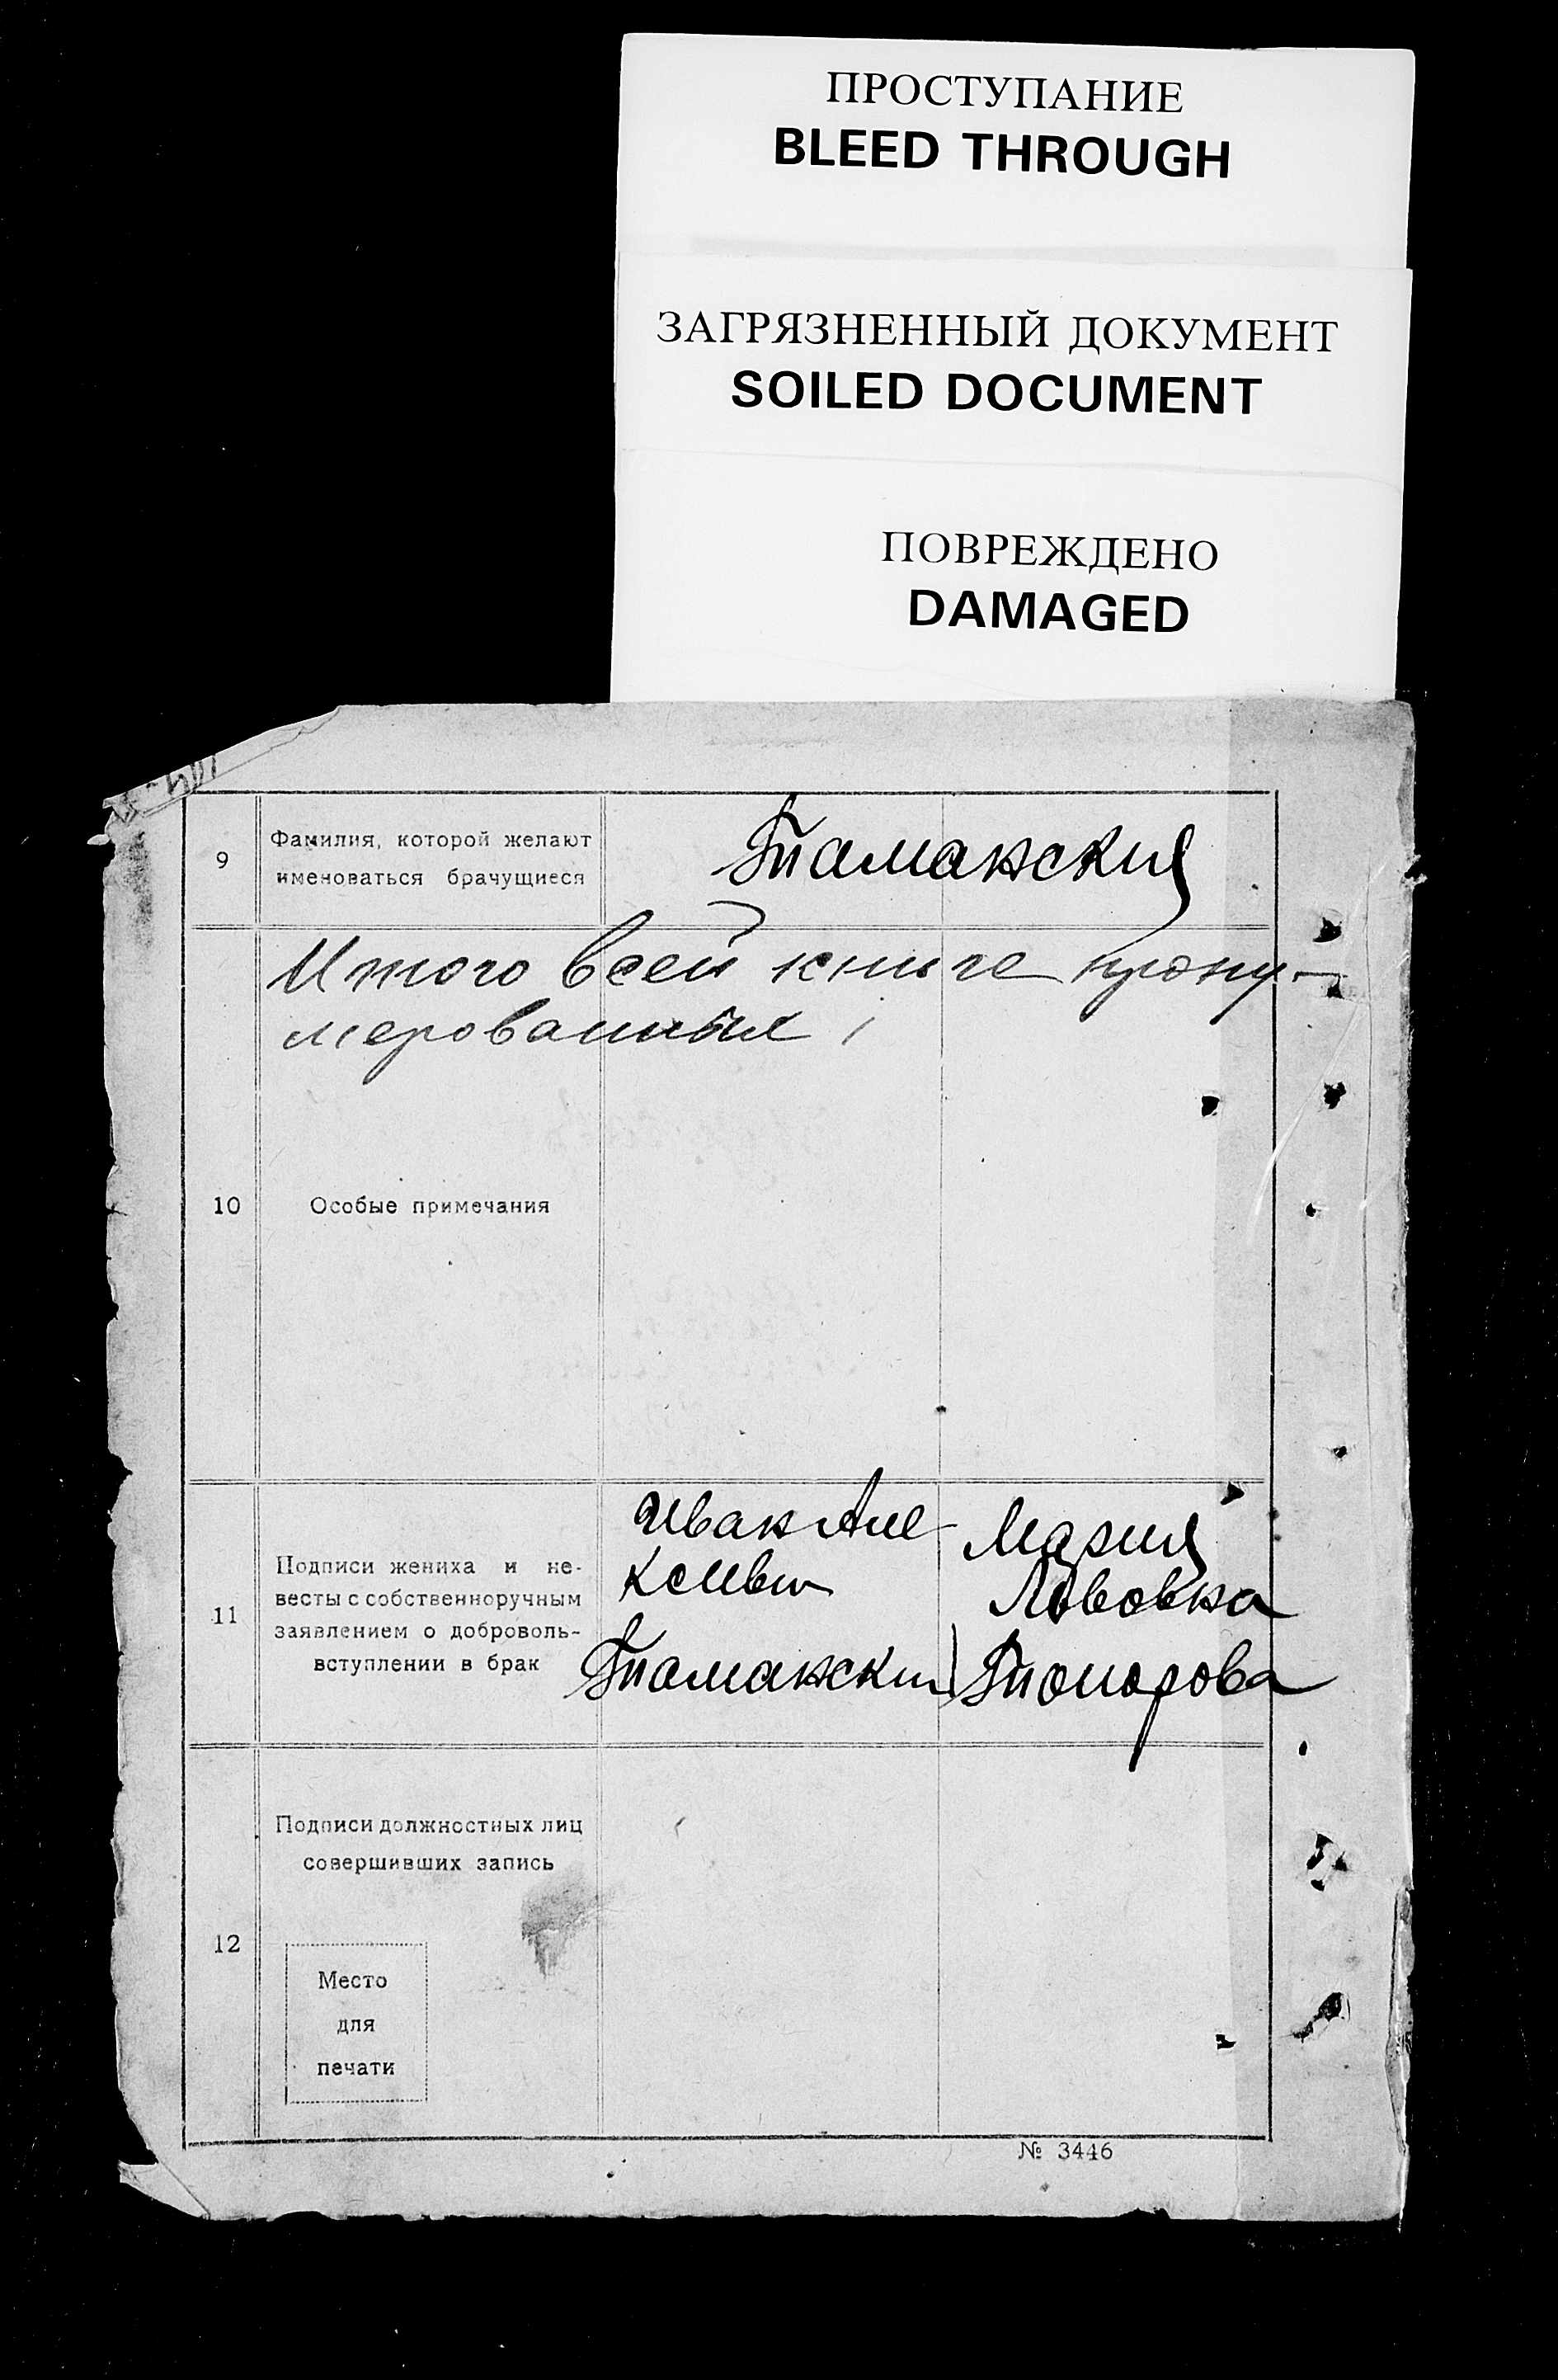 ПРОСТУПАНИЕ
BLEED THROUGH
ЗАГРЯЗНЕННЫЙ ДОКУМЕНТ
SOILED DOCUMENT
ПОВРЕЖДЕНО
DAMAGED
9
Фамилия, которой желают
именоваться брачущиеся
Таманский
Итого всей книге прону-
мерованных
10
Особые примечания
11
Подписи жениха и не-
весты с собственноручным
заявлением о доброволь-
вступлении в брак
Иван Але
ксеевич
Таманский
Мария
Львовна
Топорова
12
Подписи должностных лиц
совершивших запись
Место
для
печати
№ 3446